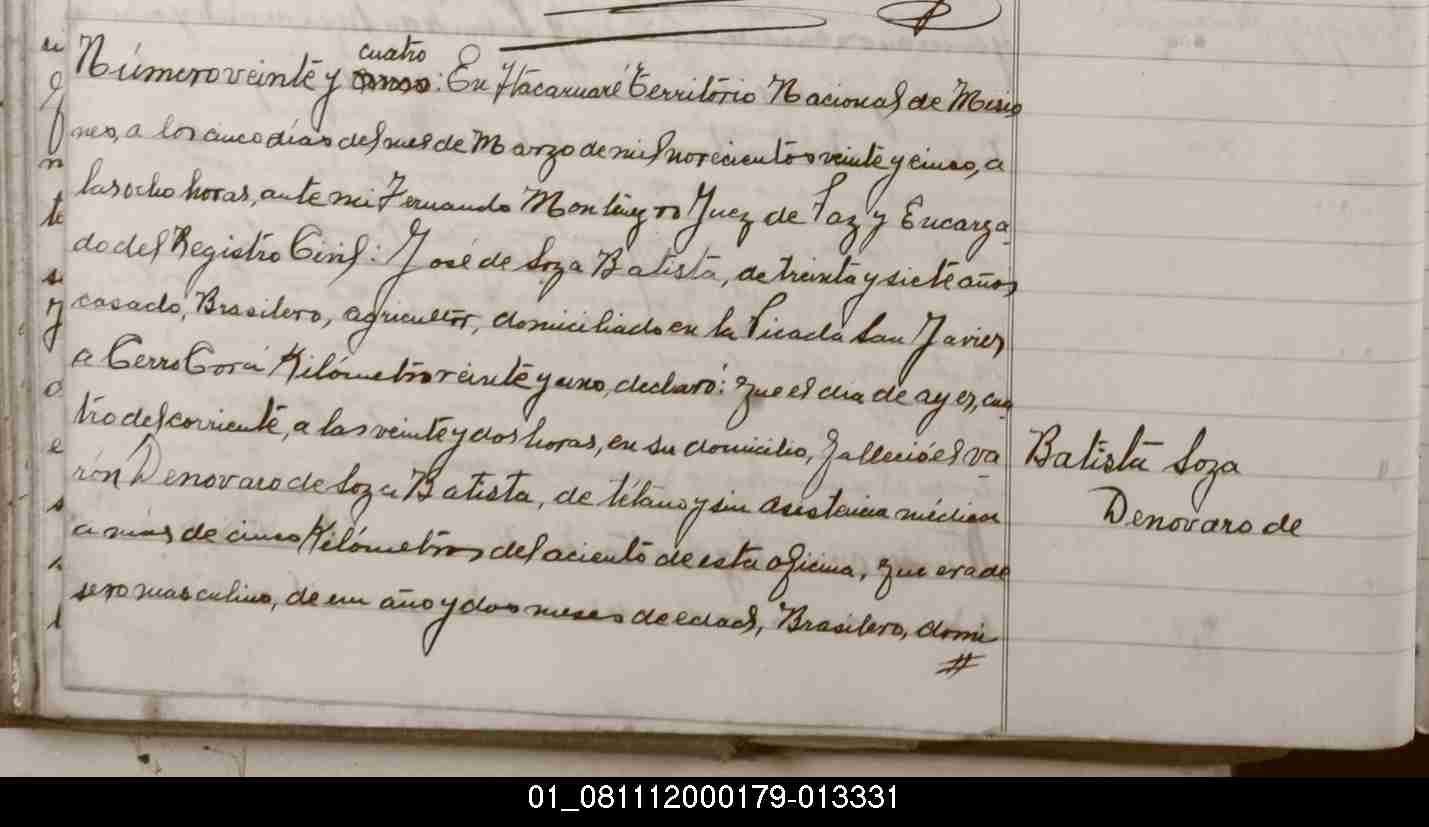 cuatro
Número veinte y cinco: En Itacaruaré Território Nacional de Misio
nes, a los cinco días del mes de Marzo de mil novecientos veinte y cinco, a
las ocho horas, ante mi Fernando Monteyro Juez de Paz y Encarga-
do del Registro Civil: José de Soza Batista, de treinta y siete años
casado, Brasilero, agricultor, domiciliado en la Picada San Javier
a Cerro Corá Kilómetro veinte y uno, declaró: que el dia de ayer, cua
tro del corriente, a las veinte y dos horas, en su domicilio, falleció el va-
rón Denovaro de Soza Batista, de tétano y sin asistencia médica
a más de cinco Kilómetros del aciento de esta oficina, que era de
sexo masculino, de un año y dos meses de edad, Brasilero, domi
#
Batista Soza
Denovaro de
01_081112000179-013331